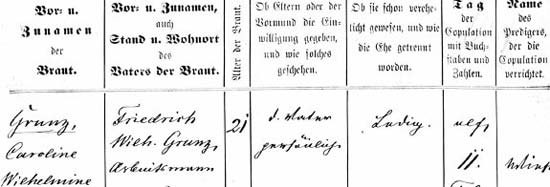 Vor= u.
Zunamen
der
Braut.
Vor= u. Zunamen,
auch
Stand u. Wohnort
des
Vaters der Braut.
Alter der Braut.
Ob Eltern oder der
Vormund die Ein=
willigung gegeben,
und wie solches
geschehen.
Ob sie schon verehe=
licht gewesen, und wie
die Ehe getrennt
worden.
Tag
der
Copulation
mit Buch=
staben und
Zahlen.
Name
des
Predigers,
der die
Copulation
verrichtet.
Grunz,
Caroline
Wilhelmine
Friedrich
Wilh. Grunz,
Arbeitsmann
21
d. Vater
persönlich
Ledig.
elf,
11.